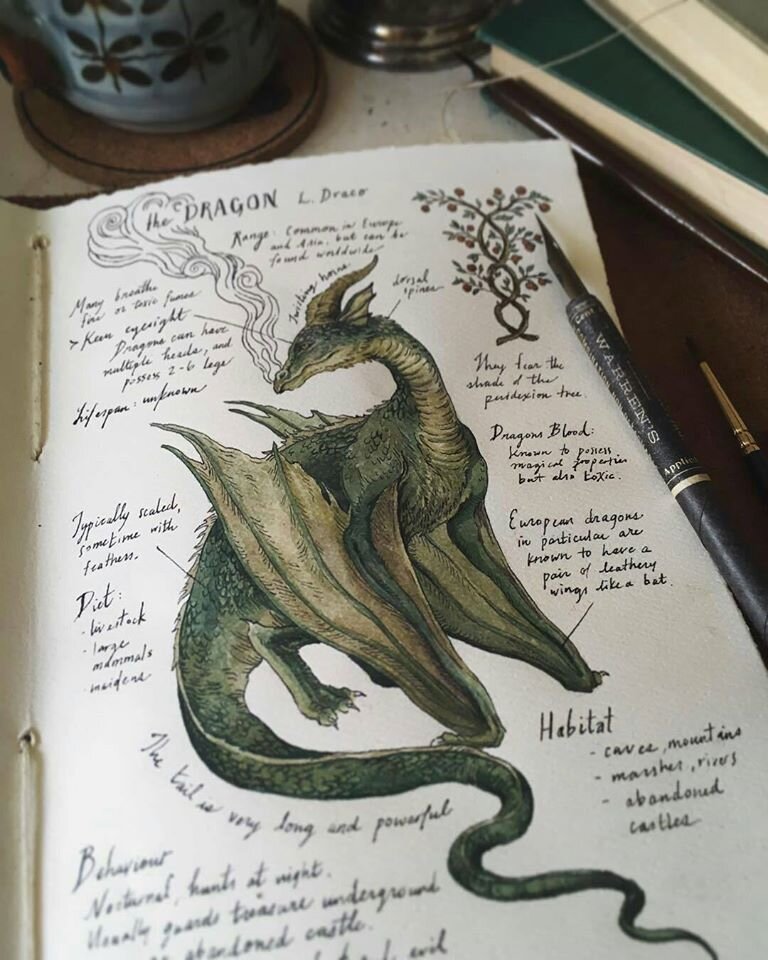 the DRAGON L. Draco
Range: Common in Europe
and Asia, but can be
found worldwide
Many breathe
fire or toxic fumes
> Keen eyesight
Dragons can have
multiple heads, and
possess 2-6 legs
Lifespan: unknown
Twisting horns
dorsal
spines
They fear the
shade of the
peridexion tree.
Dragons Blood:
Known to possess
magical properties
but also toxic.
European dragons
in particular are
known to have a
pair of leathery
wings like a bat.
Typically scaled,
sometime with
feathers.
Diet:
- livestock
- large
mammals
- maidens
Habitat
- caves, mountains
- marshes, rivers
- abandoned
castles
The tail is very long and powerful
Behaviour
Nocturnal, hunts at night.
Usually guards treasure underground
abandoned castle.
evil
WARREN'S
Applied